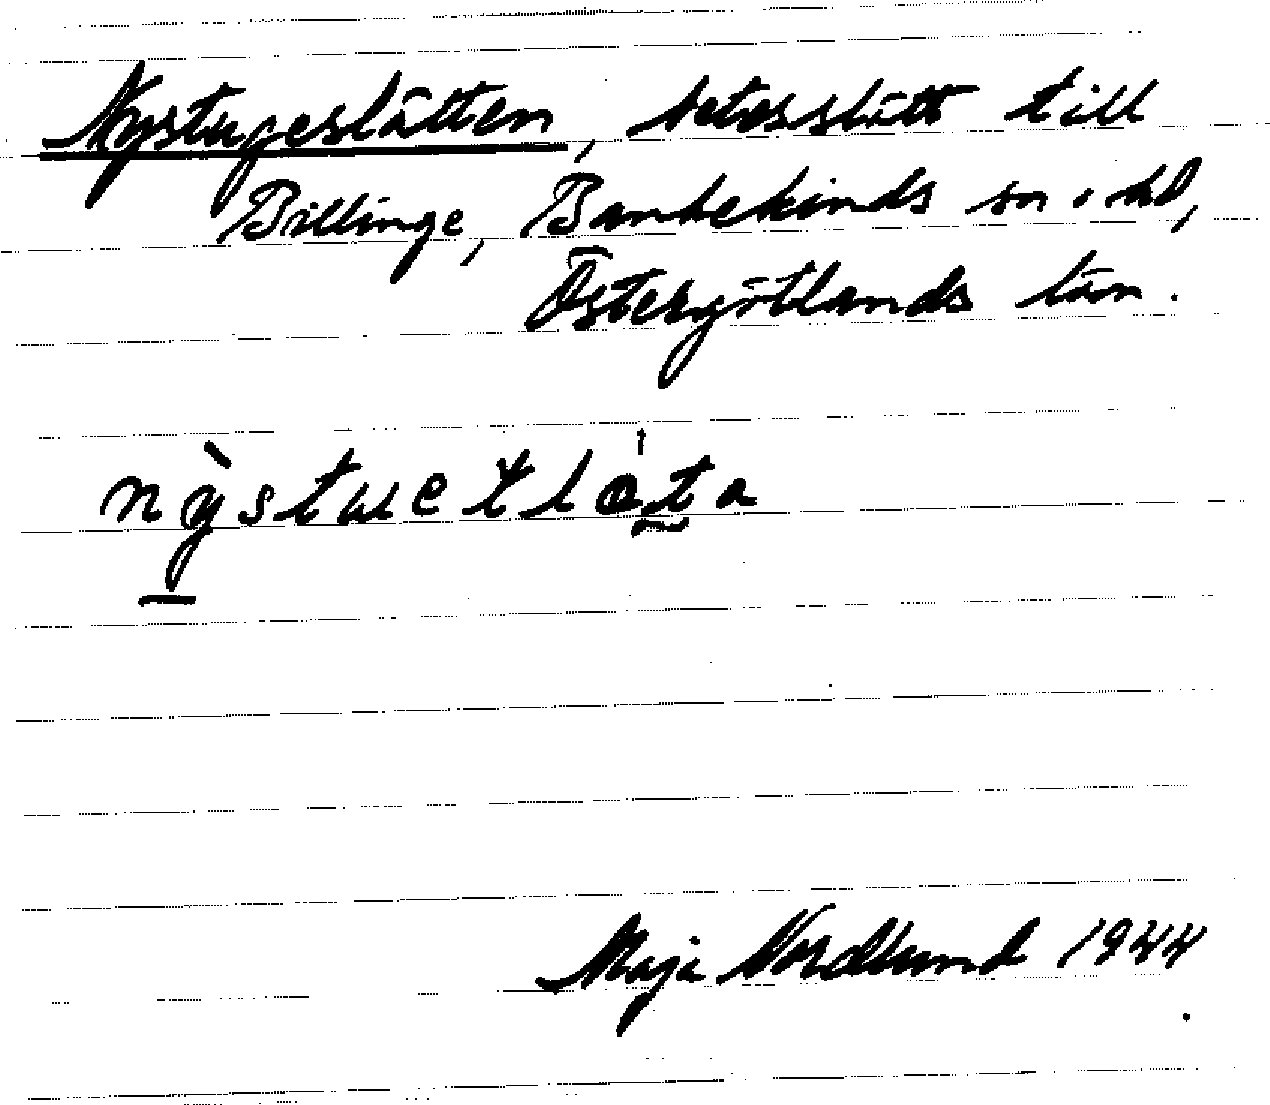 Nystugeslätten, betesslätt till
Billinge, Bankekinds sn o hd,
Östergötlands län.
nỳstueslèta
Maja Nordlund 1944